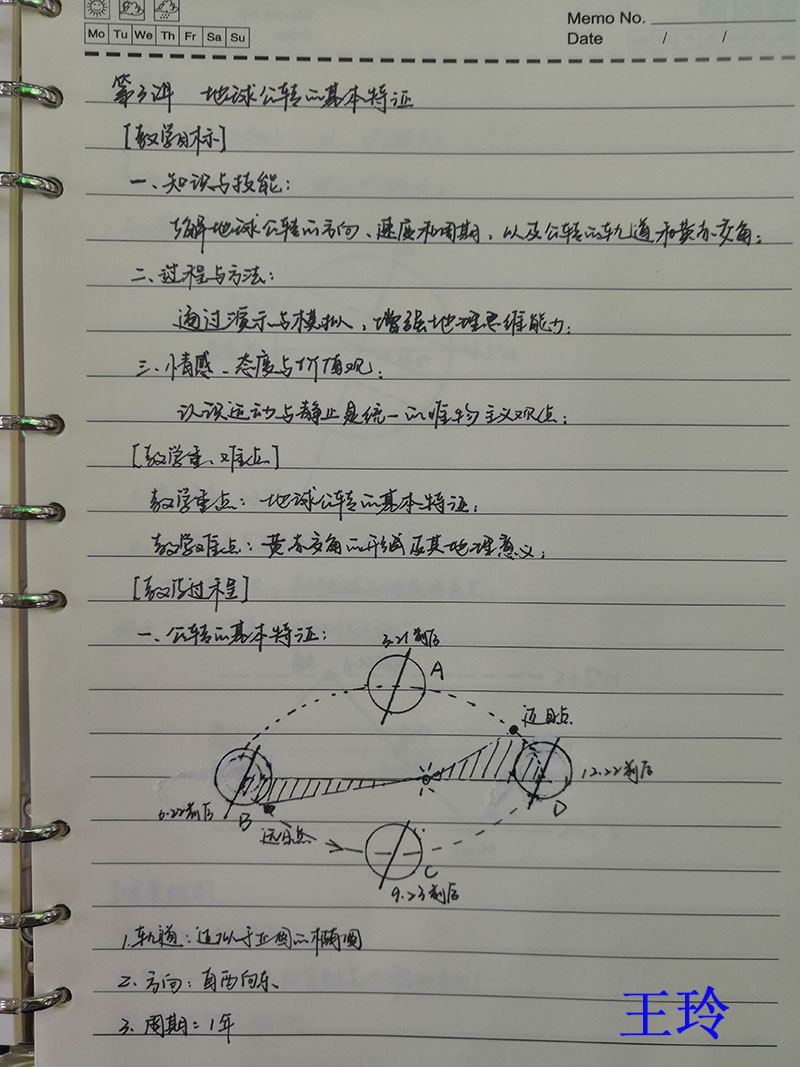 Memo No.
Mo Tu We Th Fr Sa Su
Date / /
第3讲 地球公转的基本特证
[教学目标]
一、知识与技能：
了解地球公转的方向、速度和周期，以及公转的轨道和黄赤交角；
二、过程与方法：
通过演示与模拟，增强地理思维能力；
三、情感、态度与价值观；
认识运动与静止是统一的唯物主义观点；
[教学重、难点]
教学重点：地球公转的基本特证；
教学难点：黄赤交角的形成及其地理意义；
[教学过程]
一、公转的基本特证：
3.21前后
A
近日点
12.22前后
D
6.22前后
B
远日点
C
9.23前后
1.轨道：近似于正圆的椭圆
2.方向：自西向东、
3.周期：1年
王玲